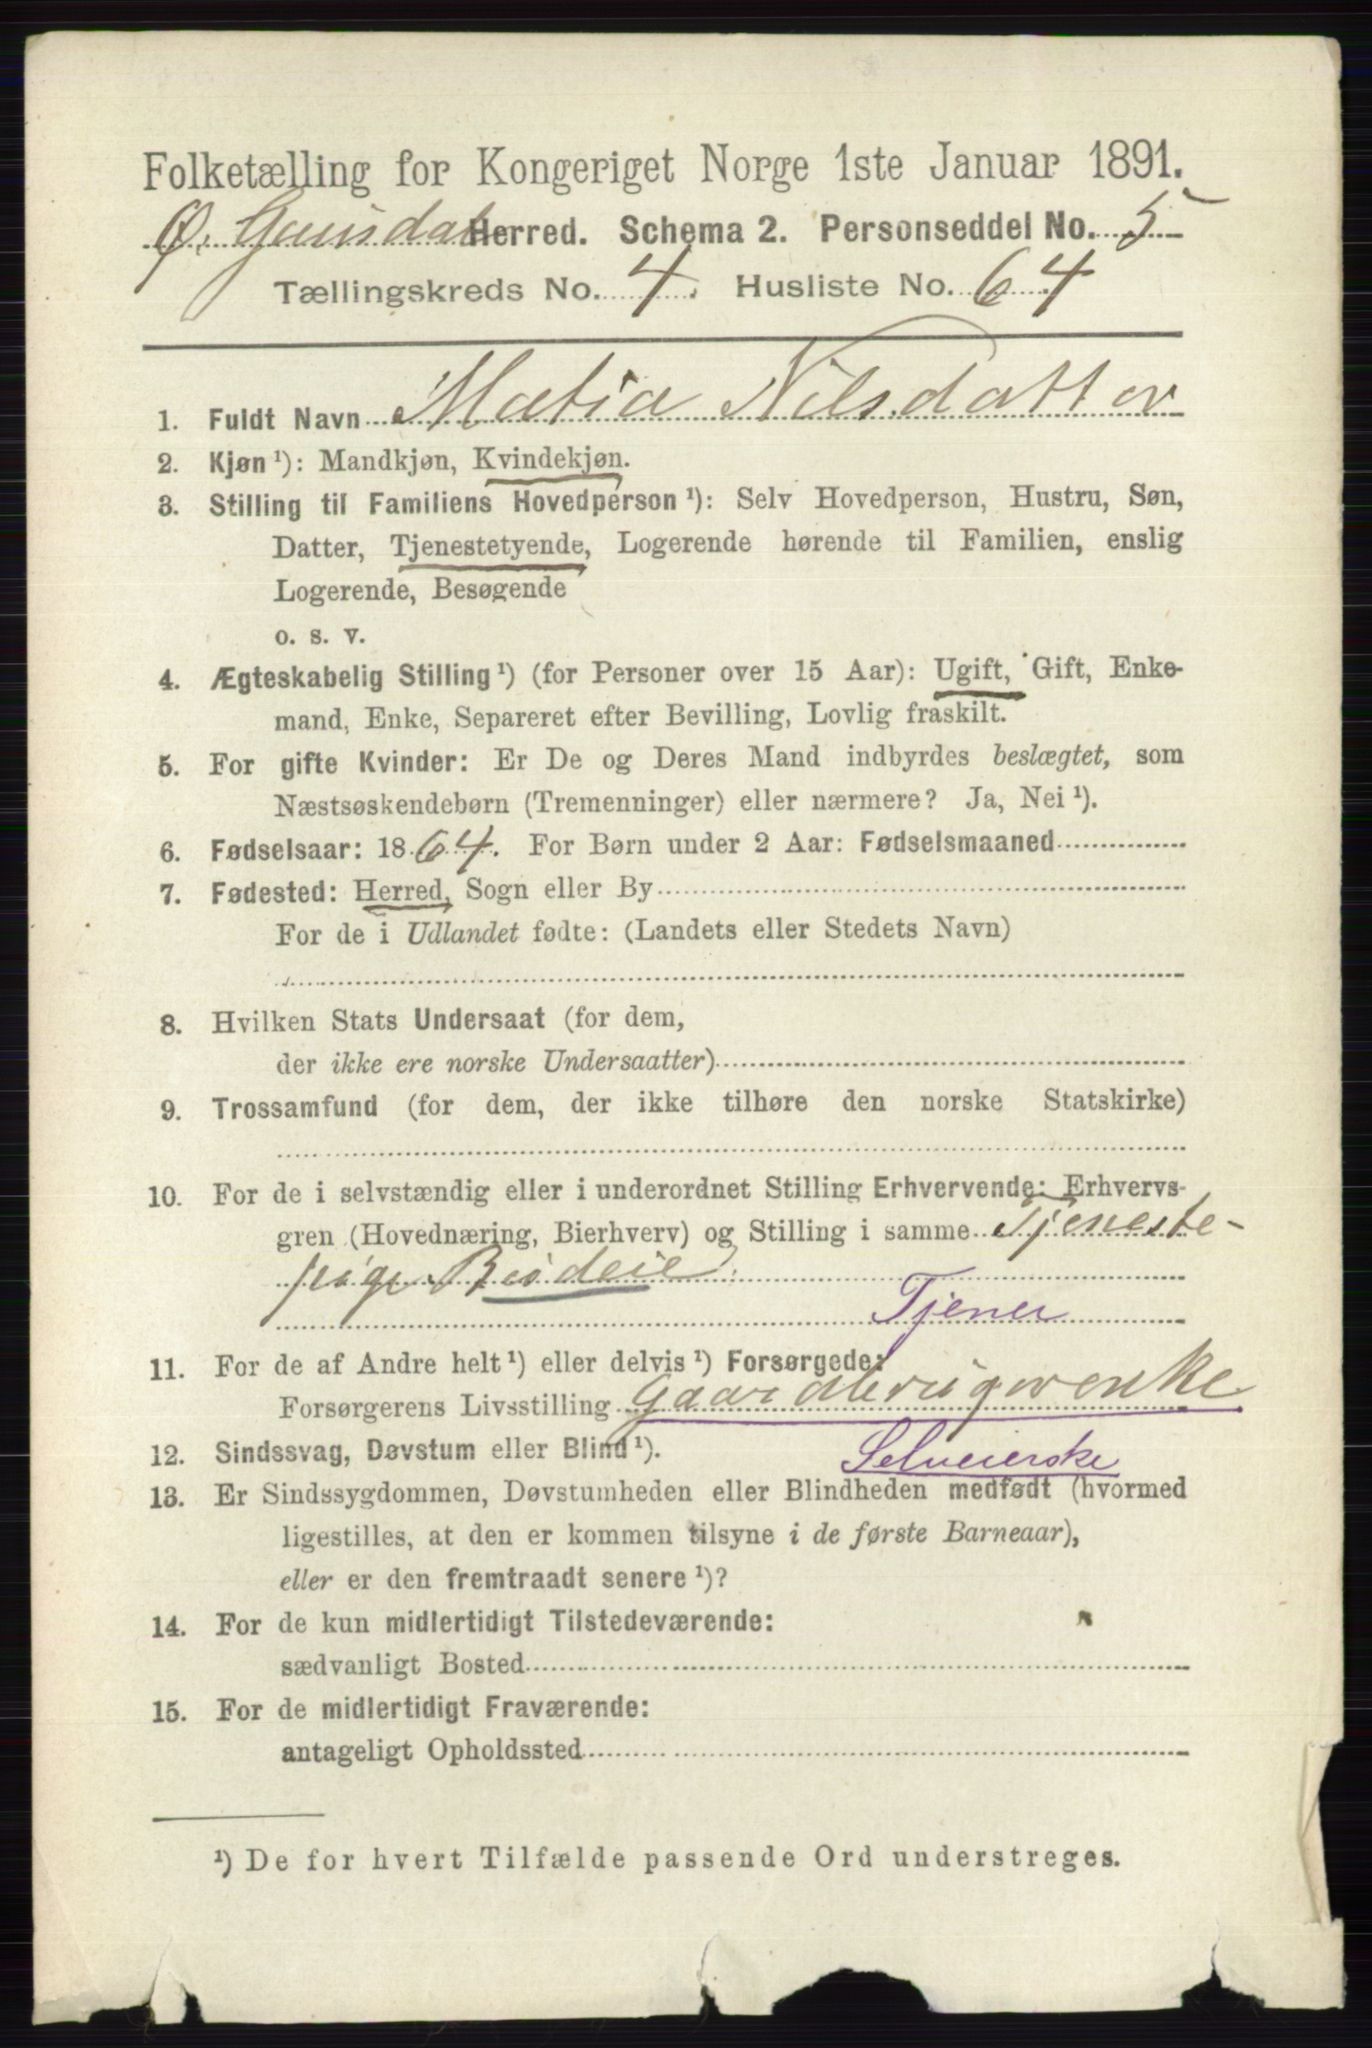 Folketælling for Kongeriget Norge 1ste Januar 1891.
Ø. Gausdal Herred. Schema 2. Personseddel No. 5
Tællingskreds No. 4. Husliste No. 64
1. Fuldt Navn Matia Nilsdatter
2. Kjøn ¹): Mandkjøn, Kvindekjøn.
3. Stilling til Familiens Hovedperson ¹): Selv Hovedperson, Hustru, Søn,
Datter, Tjenestetyende, Logerende hørende til Familien, enslig
Logerende, Besøgende
o. s. v.
4. Ægteskabelig Stilling ¹) (for Personer over 15 Aar): Ugift, Gift, Enke-
mand, Enke, Separeret efter Bevilling, Lovlig fraskilt.
5. For gifte Kvinder: Er De og Deres Mand indbyrdes beslægtet, som
Næstsøskendebørn (Tremenninger) eller nærmere? Ja, Nei ¹).
6. Fødselsaar: 1864. For Børn under 2 Aar: Fødselsmaaned
7. Fødested: Herred, Sogn eller By
For de i Udlandet fødte: (Landets eller Stedets Navn)
8. Hvilken Stats Undersaat (for dem,
der ikke ere norske Undersaatter)
9. Trossamfund (for dem, der ikke tilhøre den norske Statskirke)
10. For de i selvstændig eller i underordnet Stilling Erhvervende: Erhvervs-
gren (Hovednæring, Bierhverv) og Stilling i samme Tjeneste-
pige Budeie
Tjener
11. For de af Andre helt ¹) eller delvis ¹) Forsørgede:
Forsørgerens Livsstilling Gaardbrugerenke
12. Sindssvag, Døvstum eller Blind ¹). Selveierske
13. Er Sindssygdommen, Døvstumheden eller Blindheden medfødt (hvormed
ligestilles, at den er kommen tilsyne i de første Barneaar),
eller er den fremtraadt senere ¹)?
14. For de kun midlertidigt Tilstedeværende:
sædvanligt Bosted
15. For de midlertidigt Fraværende:
antageligt Opholdssted
¹) De for hvert Tilfælde passende Ord understreges.